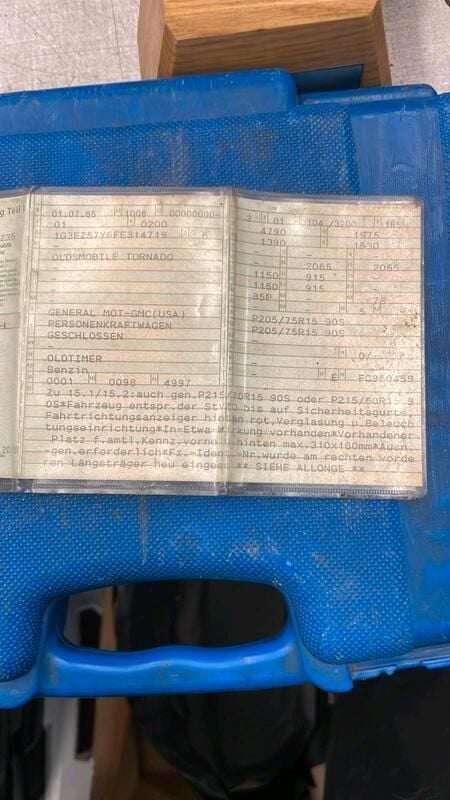 g Teil I
235
01.07.85 1006 00000000-
01 0200
1G3EZ57Y6FE314719 6
–
OLDSMOBILE TORNADO
–
–
GENERAL MOT-GMC(USA)
PERSONENKRAFTWAGEN
GESCHLOSSEN
OLDTIMER
Benzin
0001 0098 4997
2 01 104 /3200 165
4790 1975
1390 1530
–
– 2065 2065
1150 915 –
1150 915 –
85P – 75
– 5
P205/75R15 90S
P205/75R15 90S
–
– E FC960459
Zu 15.1/15.2:auch gen.P215/70R15 90S oder P215/60R15 9
0S*Fahrzeug entspr.der StVZO bis auf Sicherheitsgurte,
Fahrtrichtungsanzeiger hinten rot,Verglasung u.Beleuch
tungseinrichtung*In-Etwa-Wirkung vorhanden*Vorhandener
Platz f.amtl.Kennz.vorn u.hinten max.310x180mm*Ausn.
-gen.erforderlich*Fz.-Ident.-Nr.wurde am rechten vorde
ren Längsträger neu eingesc ** SIEHE ALLONGE **